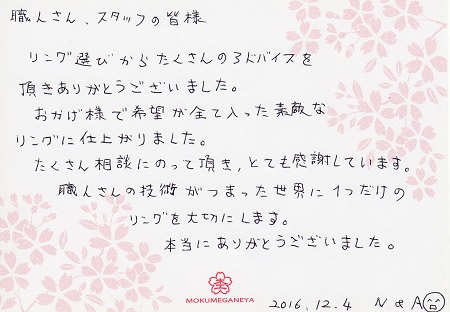 職人さん、スタッフの皆様
リング選びからたくさんのアドバイスを
頂きありがとうございました。
おかげ様で希望が全て入った素敵な
リングに仕上がりました。
たくさん相談にのって頂き、とても感謝しています。
職人さんの技術がつまった世界に1つだけの
リングを大切にします。
本当にありがとうございました。
MOKUMEGANEYA
2016.12.4 N & A